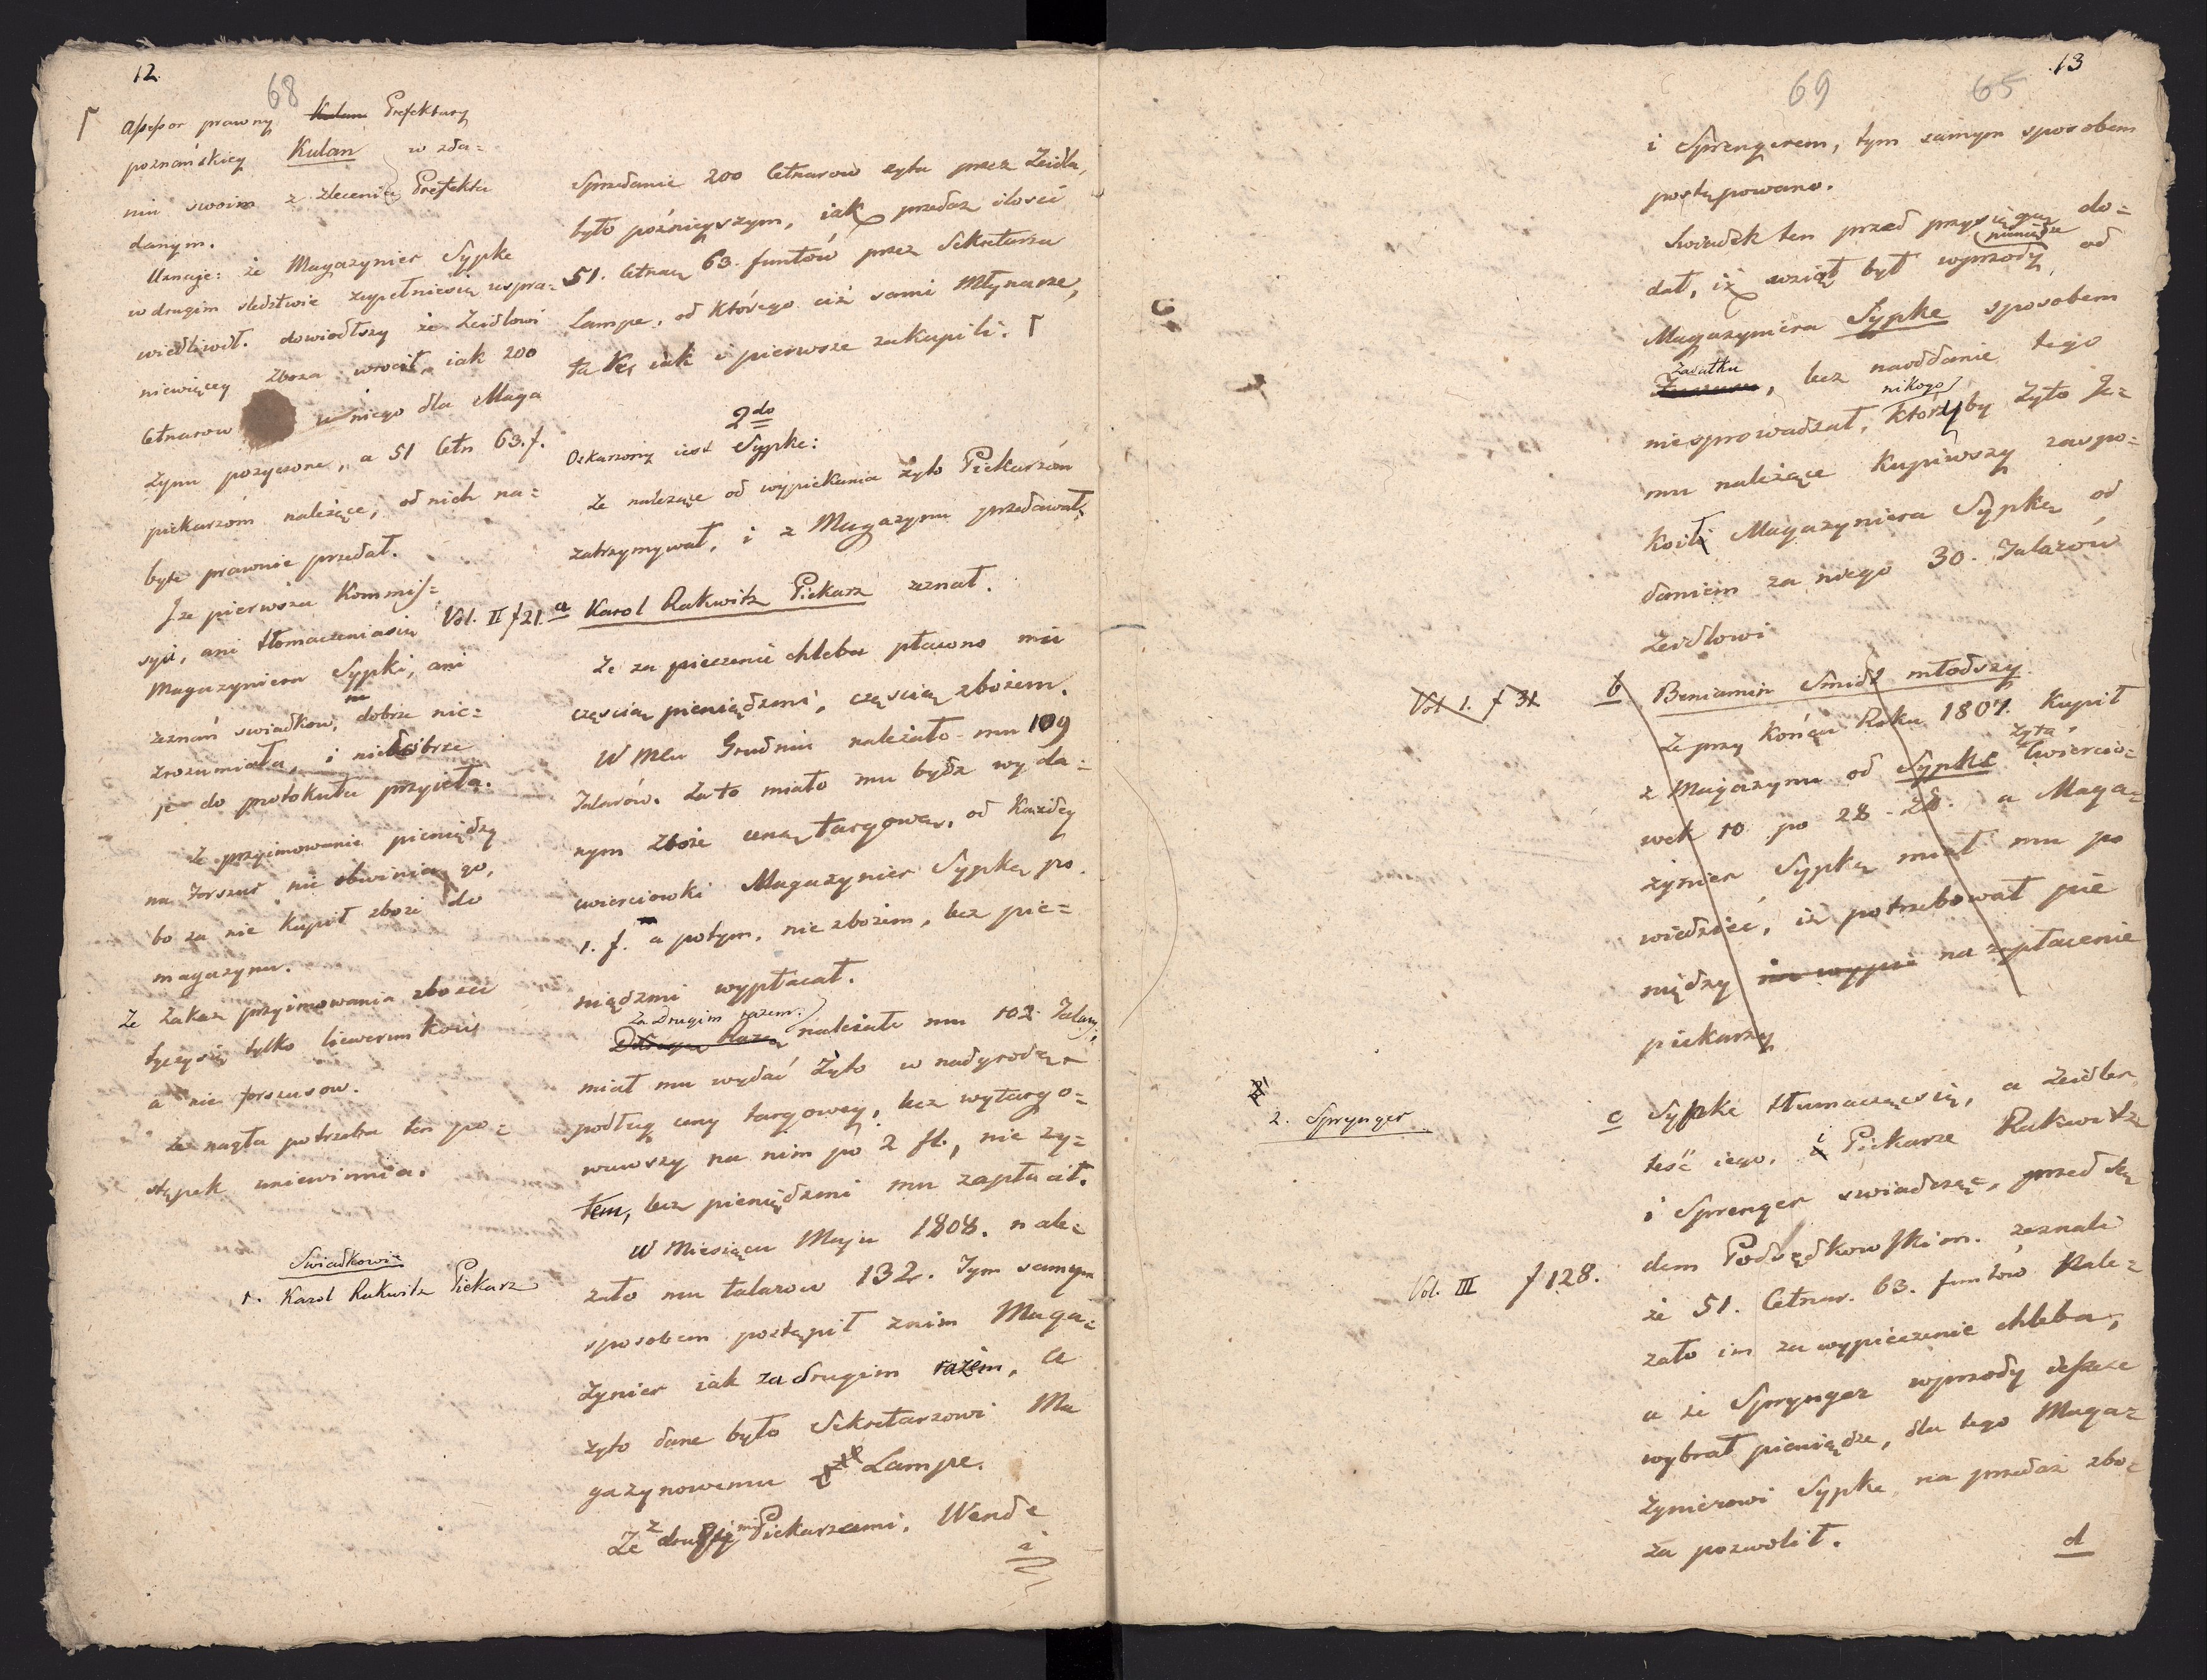 12.
68
Γ Assessor prawny Kulan Prefektury
poznańskiey Kulan w zda=
niu swoim z zlecenia Prefekta
danym.
Uznaje: że Magazynier Sypke
w drugim sledztwie zupełniesię uspra=
wiedliwił. dowiodłszy że Zeidlowi
niewięcey zboza wrocił, iak 200
Cetnarow u niego dla Maga
zynu pozyczone, a 51 Cetn 63. f.
piekarzóm należące, od nich na=
byte prawnie przedał.
Iże pierwsza Kommis=
syia, ani tłomaczeniasię
Magazyniera Sypki, ani
zeznań swiadkow, dobrze nie=
zrozumiała, i niedobrze
je do protokułu przyięła.
Ze przyimowanie pieniędzy
na forszus nie obwinia go,
bo za nie kupił zboże do
magazynu.
Ze Zakaz przyimowania zboża
tyczy się tylko liwerunkow
a nie forszusow.
Ze nagła potrzeba ten po=
stępek uniewinnia.
Swiadkowie
1. Karol Rakwitz Piekarz
Sprzedanie 200 Cetnarow zyta przez Zeidla,
było poźnieyszym, iak przedaz ilości
51. Cetnar 63. funtów przez Sekretarza
Lampe, od którego ciż sami Młynarze,
tak iak i pierwsze zakupili. Γ
2do
Oskarzony iest Sypke:
Że należące od wypiekania żyto Piekarzóm
zatrzymywał, i z Magazynu przedawał.
Vol. II f 21. a Karol Rakwitz Piekarz zeznał.
Że za pieczenie chleba płacono mu
częscią pieniędzmi, częscią zbożem.
W Mcu Grudniu należało mu 109
Talarów. Za to miało mu bydz wyda=
nym zboże ceną targową, od każdey
cwierciowki Magazynier Sypke po
1. f. a potym, nie zbożem, lecz pie=
niądzmi wypłacał.
Za Drugim razem
Drugą Razą należało mu 102. Talary,
miał mu wydać Żyto w nadgrodzę
podług ceny targowey, lecz wytargo=
wawszy na nim po 2 fl., nie zy=
tem, lecz pieniędzmi mu zapłacił.
W Miesiącu Maju 1808. nale=
zało mu talarow 132. Tym samym
sposobem postąpił z nim Maga=
zynier iak za drugim razem, a
zyto dane było Sekretarzowi Ma
gazynowemu Lampe.
Że z drugiemi Piekarzami. Wende
i
13
69
65
i Sprengerem, tym samym sposobem
postępowano.
Swiadek ten przed przysięgą do=
pieniądze
dał, iż wziął był wprzody od
Magazyniera Sypke sposobem
Zasiłku
, lecz naoddanie tego
nikogo
niesprowadzał, któryby żyto Je=
mu należące kupiwszy zaspo=
koił Magazyniera Sypkę od
daniem za niego 30. Talarów
Zeidlowi
Vol 1. f 31 b Beniamin Smidt młodszy.
Że przy końcu Roku 1807. Kupił
Zyta
z Magazynu od Sypke Cwiercio=
wek 10 po 28 - zł. a Maga=
zynier Sypke miał mu po
wiedzieć, iż potrzebował pie
niędzy na wypie na zapłacenie
piekarzy
2. Sprynger
c Sypke tłumaczącsię, a Zeidler
teść iego, i Piekarze Rakwitz
i Sprenger swiadcząc, przed Sę
dem Podsędkowskim. zeznali
Vol. III f 128.
że 51. Cetnar. 63. funtów Nale=
zało im za wypieczenie chleba,
a że Sprynger wprzody jeszcze
wybrał pieniądze, dla tego Maga=
zynierowi Sypke na przedaż zbo=
za pozwolił.
d